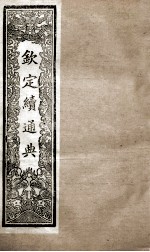 欽定續通典